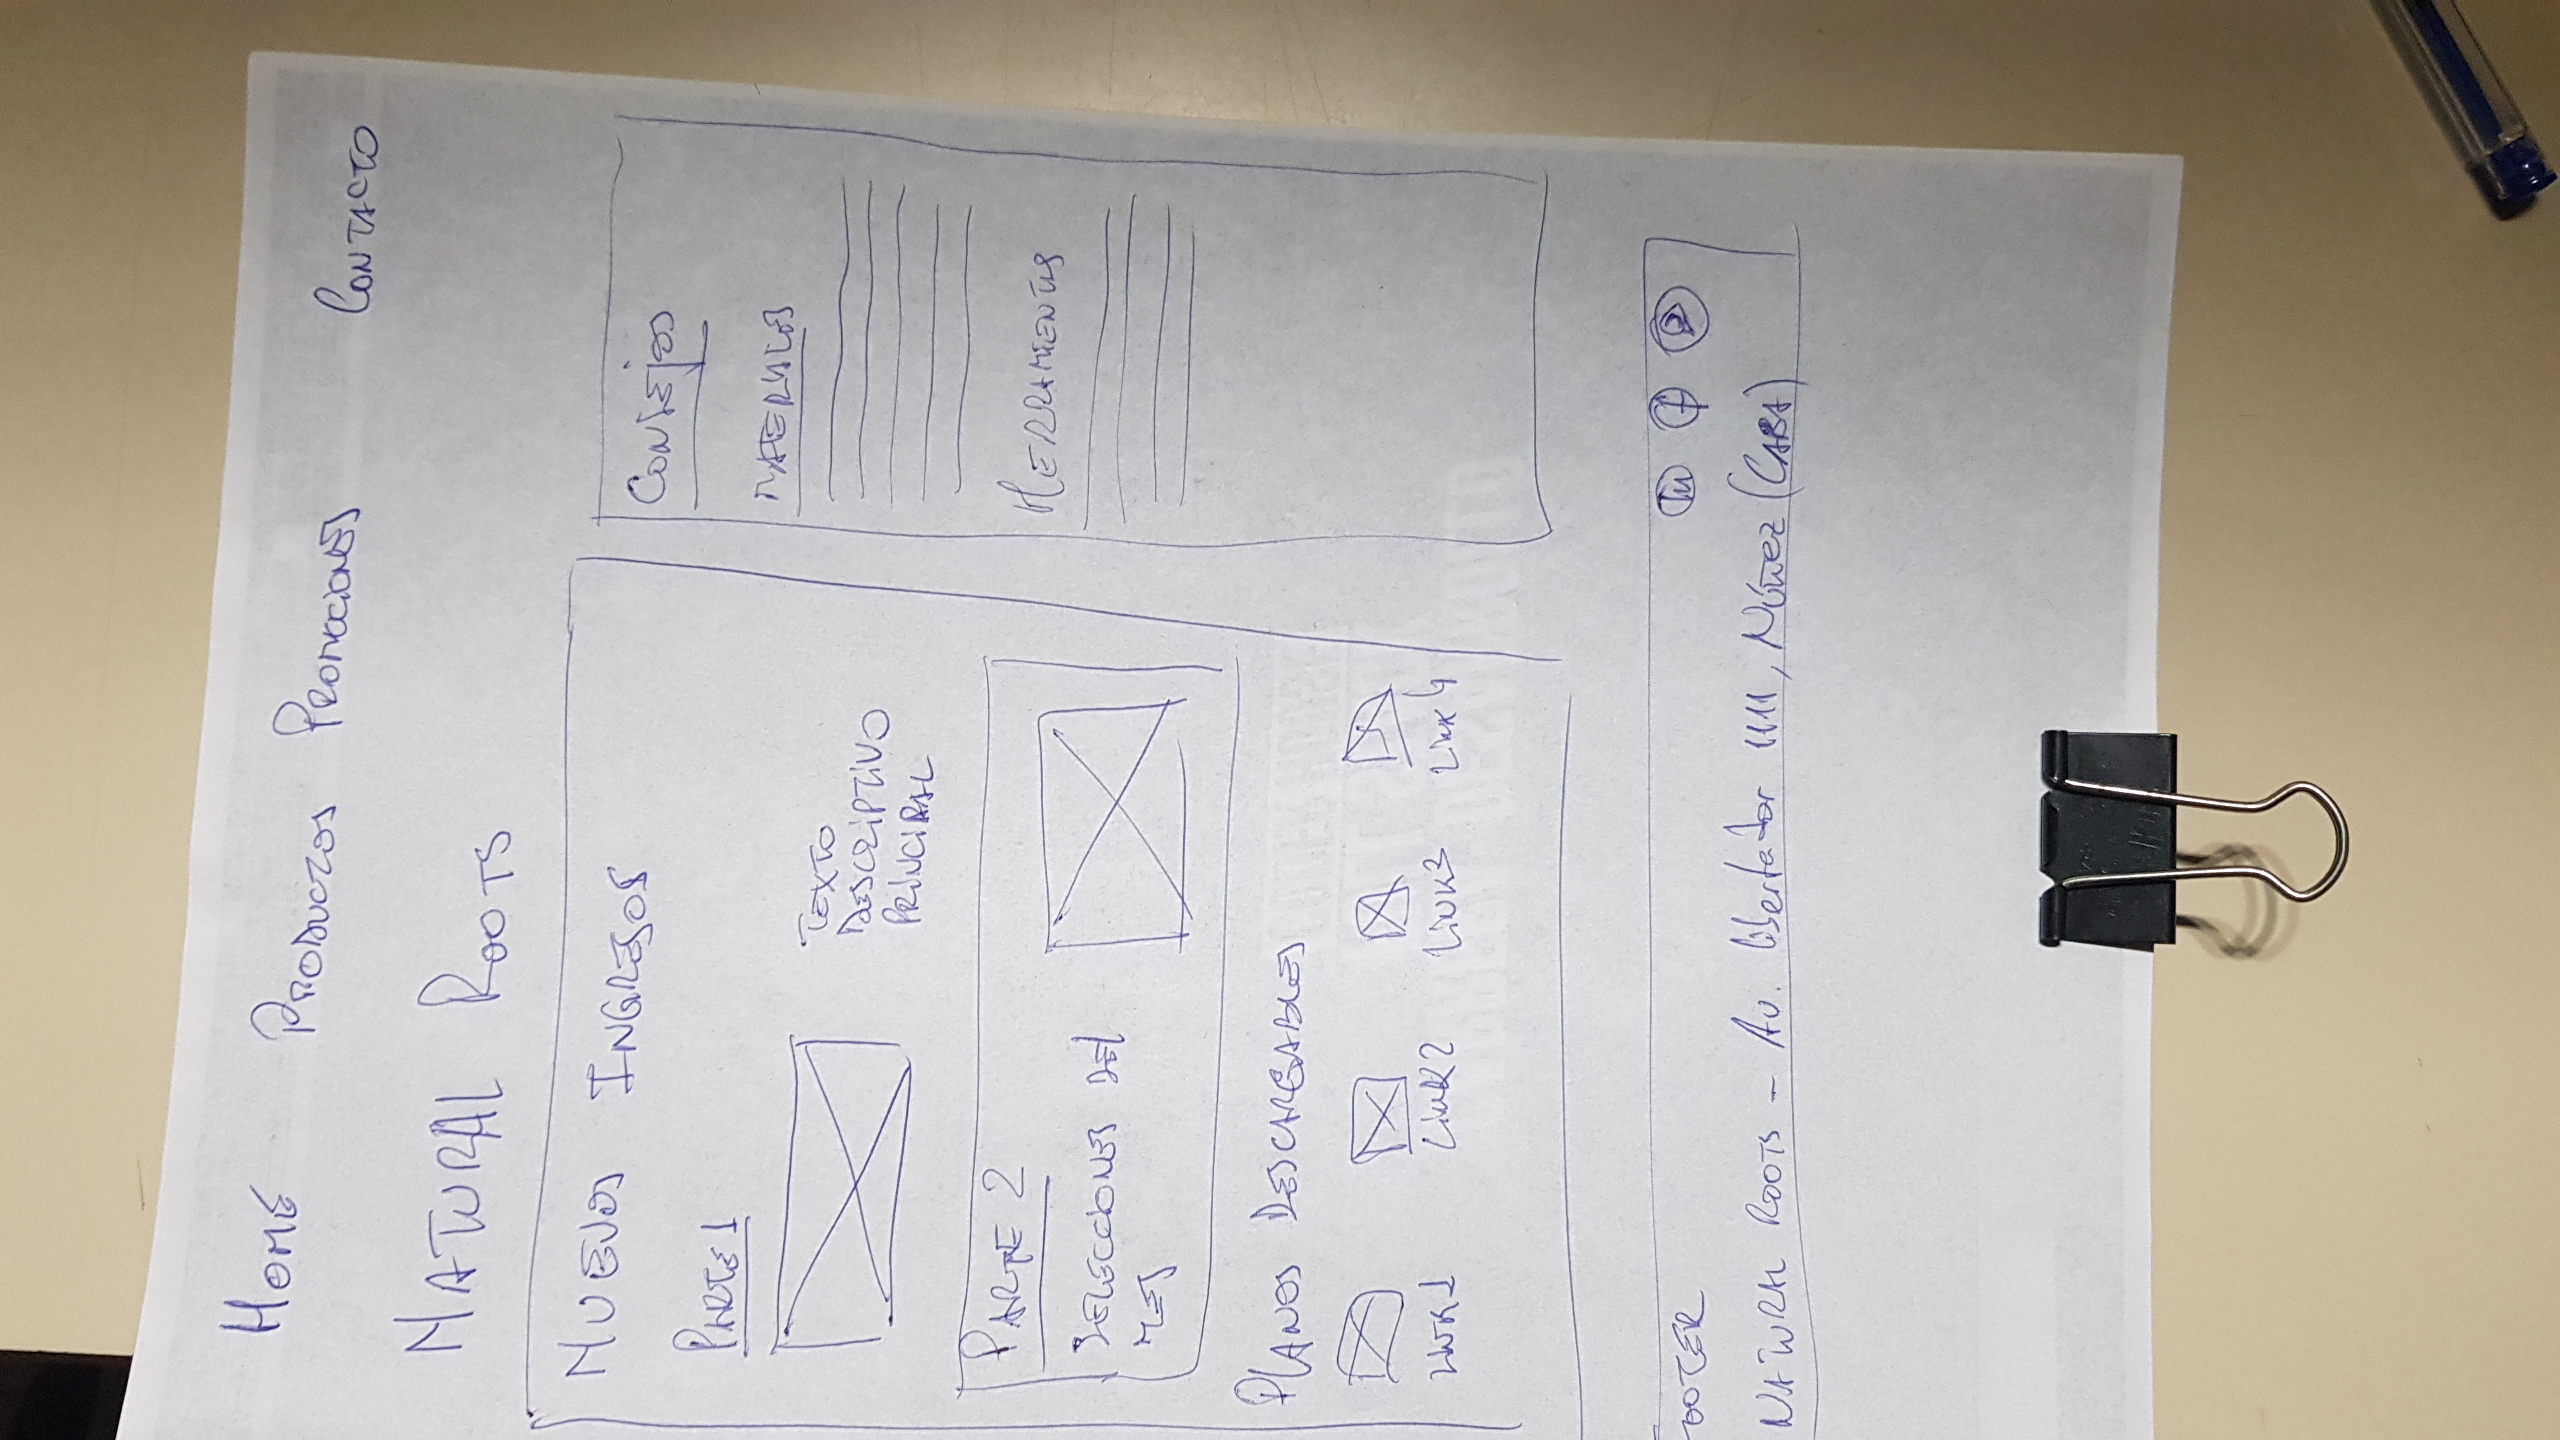 HOME PRODUCTOS PROMOCIONES CONTACTO
NATURAL ROOTS
NUEVOS INGRESOS
PARTE 1
TEXTO
DESCRIPTIVO
PRINCIPAL
PARTE 2
SELECCIONES DEL
MES
PLANOS DESCARGABLES
LINK1 LINK2 LINK3 LINK4
CONSEJOS
MATERIALES
HERRAMIENTAS
OOTER
in f
NATURAL ROOTS - Av. libertador 1111, Núñez (CABA)